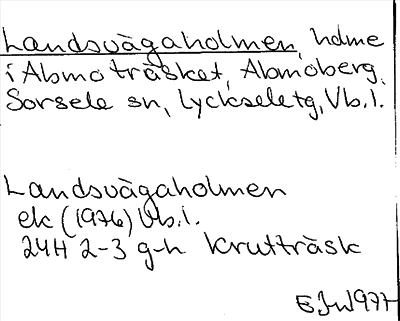 Landsvägaholmen, holme
i Abmoträsket, Abmoberg,
Sorsele sn, Lyckseletg, Vb.l.
Landsvägaholmen
ek (1976) Vb.l.
24H 2-3 g-h Krutträsk